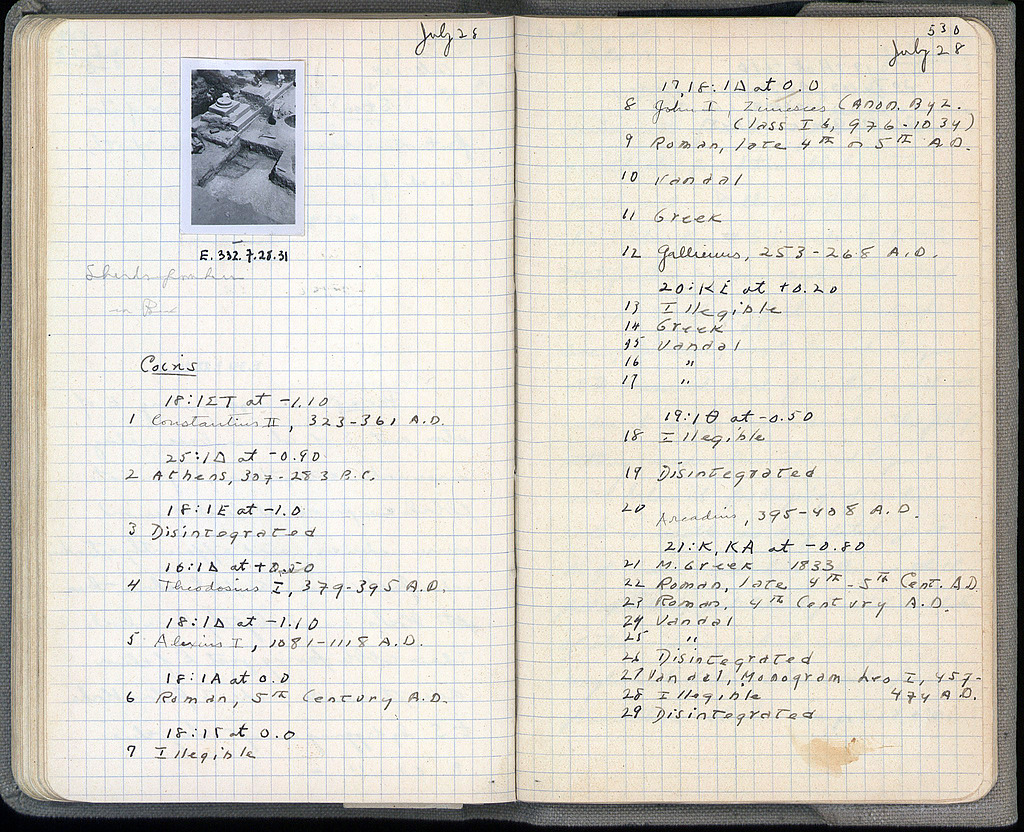 July 28
E. 332.7.28.31
in
Coins
18:ΙΣΤ at -1.10
1 Constantius II, 323-361 A.D.
25:ΙΔ at -0.90
2 Athens, 307-283 B.C.
18:ΙΕ at -1.0
3 Disintegrated
16:ΙΔ at +0.50
4 Theodosius I, 379-395 A.D.
18:ΙΔ at -1.10
5 Alexius I, 1081-1118 A.D.
18:ΙΑ at 0.0
6 Roman, 5th Century A.D.
18:ΙΓ at 0.0
7 Illegible
530
July 28
17,18:ΙΔ at 0.0
8 John I Zimisces (Anon. Byz.
Class I b, 976-1034)
9 Roman, late 4th or 5th A.D.
10 Vandal
11 Greek
12 Gallienus, 253-268 A.D.
20:ΚΕ at +0.20
13 Illegible
14 Greek
15 Vandal
16 "
17 "
19:ΙΘ at -0.50
18 Illegible
19 Disintegrated
20 Arcadius, 395-408 A.D.
21:Κ,ΚΑ at -0.80
21 M. Greek 1833
22 Roman, late 4th-5th Cent. A.D.
23 Roman, 4th Century A.D.
24 Vandal
25 "
26 Disintegrated
27 Vandal, Monogram Leo I, 457-
28 Illegible 474 A.D.
29 Disintegrated